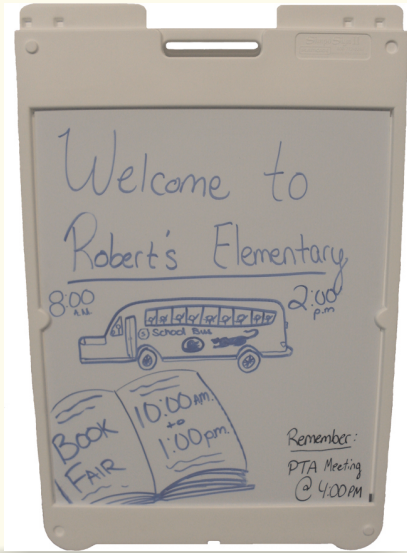 Welcome to
Robert's Elementary
8:00 A.M.
2:00 p.m
School Bus
BOOK
FAIR
10:00 AM.
to
1:00 pm.
Remember:
PTA Meeting
@ 4:00 PM